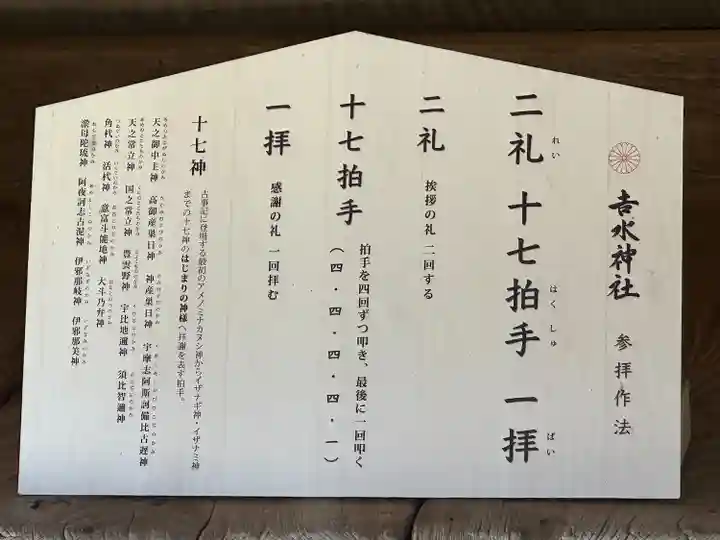 吉水神社 参拝作法
二礼 十七拍手 一拝
れい はくしゅ ぱい
二礼 挨拶の礼 二回する
十七拍手 拍手を四回ずつ叩き、最後に一回叩く
(四・四・四・四・一)
一拝 感謝の礼 一回拝む
十七神 古事記に登場する最初のアメノミナカヌシ神からイザナギ神・イザナミ神
までの十七神のはじまりの神様へ拝謝を表す拍手。
天之御中主神 高御産巣日神 神産巣日神 宇摩志阿斯訶備比古遅神
天之常立神 国之常立神 豊雲野神 宇比地邇神 須比智邇神
角杙神 活杙神 意富斗能地神 大斗乃弁神
淤母陀琉神 阿夜訶志古泥神 伊邪那岐神 伊邪那美神